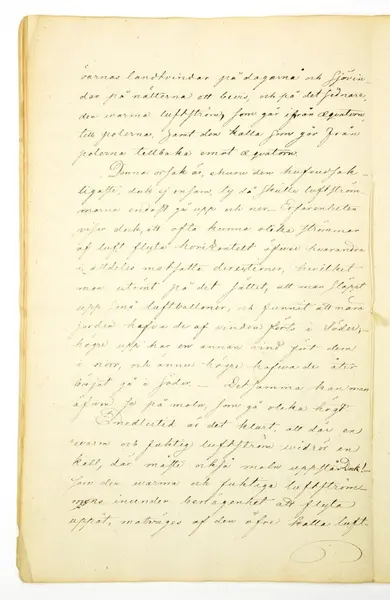 öarnas landtvindar på dagarna och sjövin-
dar på nätterna ett bevis, och på det sednare,
den varma luftström, som går ifrån æquatorn,
till polerna, samt den kalla som går från
polerna tillbaka emot æquatorn.
Denna orsak är, churu den hufvudsak-
ligaste, dock ej ensam, ty då skulle luftström
marna endast gå upp och ner. Erfarenheten
visar dock, att ofta kunna olika strömmar
af luft flyta horizontelt öfver hvarandra
i alldeles motsatta direktioner, hvilket
man utrönt på det sättet, att man släppt
upp små luftballoner, och funnit att nära
jorden hafva de af vinden förts i söder,
högre upp har en annan vind fört dem
i norr, och ännu högre hafva de åter
börjat gå i söder. — Detsamma kan man
äfven se på moln, som gå olika högt
Imedlertid är det klart, att där en
varm och fuktig luftström vidrör en
kall, där måste också moln uppstå
som den varma och fuktiga luftström
mens inunder benägenhet att flyta
uppåt, motväges af den öfre kalla luft-